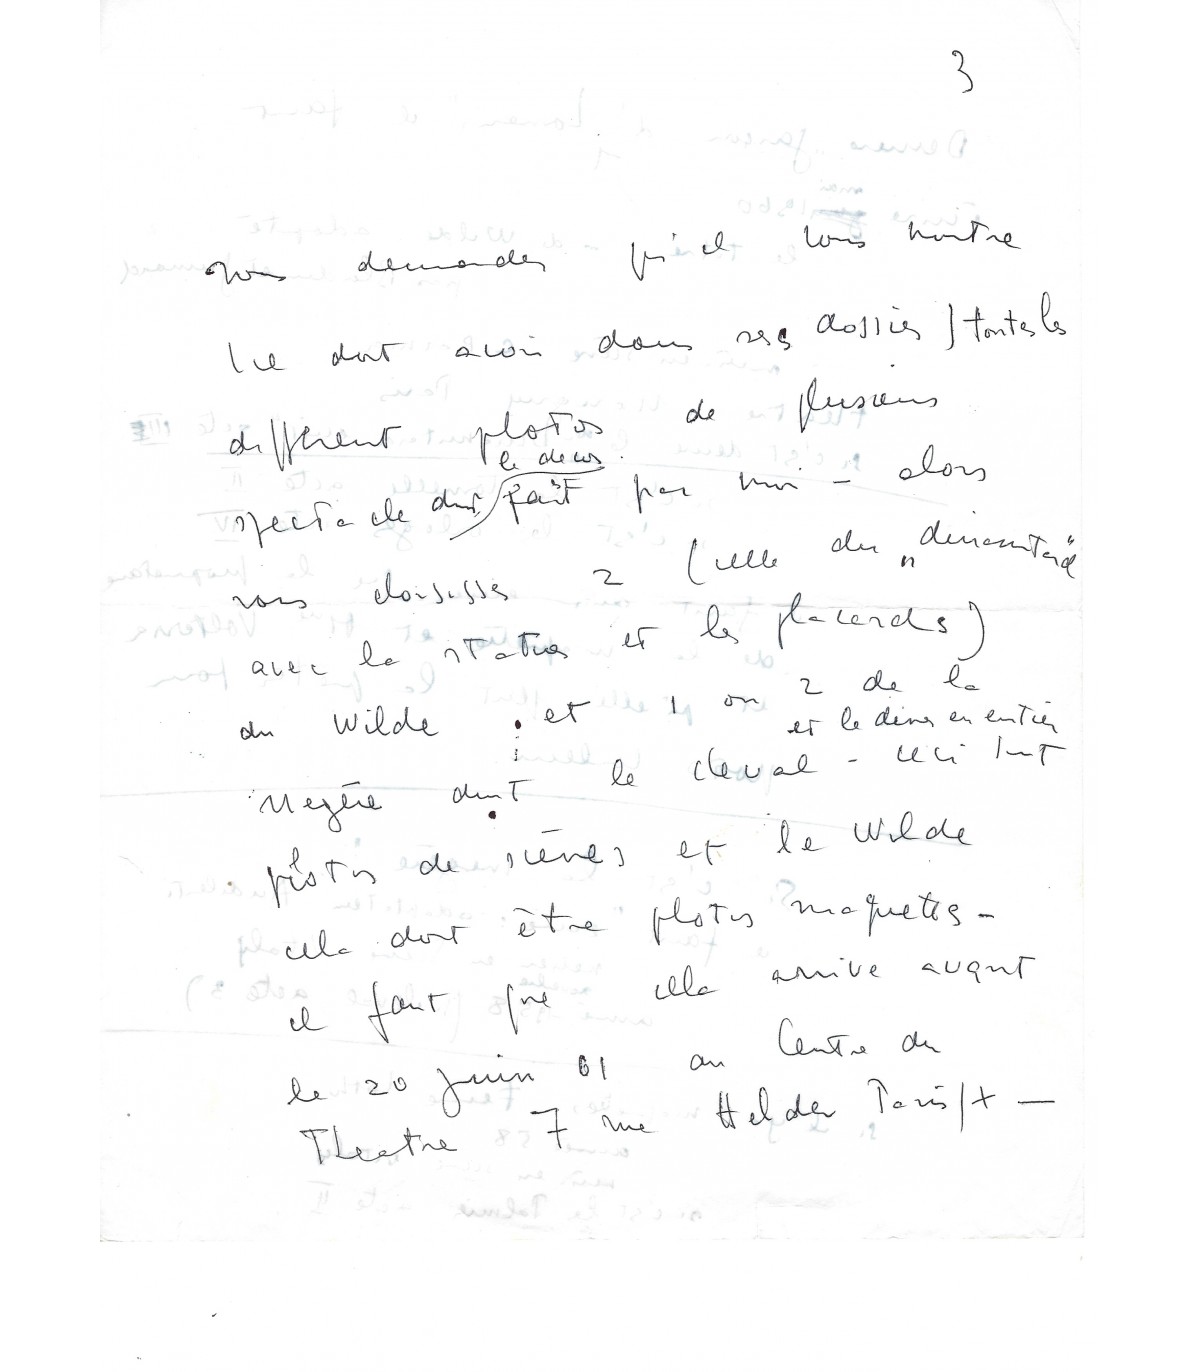 3
vous demander qu'il vous montre
(ce doit avoir dans ses dossiers) toutes les
différent photos de plusieurs
le decor
spectacle dont fait par moi – alors
vous choisissés 2 (celle du
avec la statues et les placards)
du Wilde et 1 ou 2 de la
et le décor en entier
Megère dont le cheval – ceci
photos de scènes et le Wilde
cela doit être photos maquettes –
il faut que cela arrive avant
le 20 juin 61 au Centre du
Theatre 7 rue Helder Paris/X —